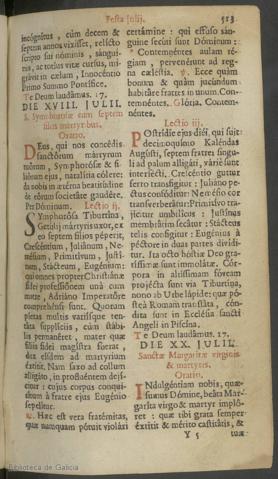 Festa Julij.
513
incógnitus, cùm decem &
septem annos vixisset, relícto
scripto sui nóminis, sangui-
nis, ac totíus vitæ cursus, mi-
grávit in cælum, Innocéntio
Primo Summo Pontífice.
Te Deum laudámus. 17.
DIE XVIII. JULII.
S. Symphorosæ cum septem
filiis martyribus.
Oratio.
DEus, qui nos concédis
sanctórum mártyrum
tuórum, Symphorósæ & fi-
liórum ejus, natalítia cólere:
da nobis in ætérna beatitúdine
de eórum societáte gaudére.
Per Dóminum. Lectio ij.
SYmphorósa Tiburtína,
Getúlij mártyris uxor, ex
eo septem fílios péperit,
Crescéntium, Juliánum, Ne-
mésium, Primitívum, Justí-
num, Stácteum, Eugénium:
qui omnes propter Christiánæ
fídei professiónem unà cum
matre, Adriáno Imperatóre
comprehénsi sunt. Quorum
pietas multis variísque ten-
táta supplíciis, cùm stábi-
lis permanéret, mater quæ
fíliis fídei magístra fúerat,
dux eísdem ad martýrium
éxtitit. Nam saxo ad collum
alligáto, in profluéntem dejí-
citur: cujus corpus conquisí-
tum à fratre ejus Eugénio
sepelítur.
℟. Hæc est vera fratérnitas,
quæ numquam pótuit violári
certámine: qui effúso sán-
guine secúti sunt Dóminum:
* Contemnéntes aulam ré-
giam, pervenérunt ad reg-
na cæléstia. ℣. Ecce quàm
bonum & quàm jucúndum
habitáre fratres in unum. Con-
temnéntes. Glória. Contem-
néntes.
Lectio iij.
POstrídie ejus diéi, qui fuit
décimoquinto Kaléndas
Augústi, septem fratres síngu-
li ad palum alligáti, váriè sunt
interfécti. Crescéntio guttur
ferro transfígitur: Juliáno pe-
ctus confóditur: Nemésio cor
transverberátur: Primitívo tra-
jícitur umbilícus: Justínus
membrátim secátur: Stácteus
telis confígitur: Eugénius à
péctore in duas partes divídi-
tur. Ita octo hóstiæ Deo gra-
tíssimæ sunt immolátæ. Cór-
pora in altíssimam fóveam
projécta sunt via Tiburtína,
nono ab Urbe lápide: quæ pó-
steà Romam transláta, cón-
dita sunt in Ecclésia sancti
Angeli in Piscína.
Te Deum laudámus. 17.
DIE XX. JULII.
Sanctæ Margaritæ virginis
& martyris.
Oratio.
INdulgéntiam nobis, quǽ-
sumus Dómine, beáta Mar-
garíta virgo & martyr implό-
ret: quæ tibi grata semper
éxtitit & mérito castitátis, &
Y 5
tuæ
Biblioteca de Galicia